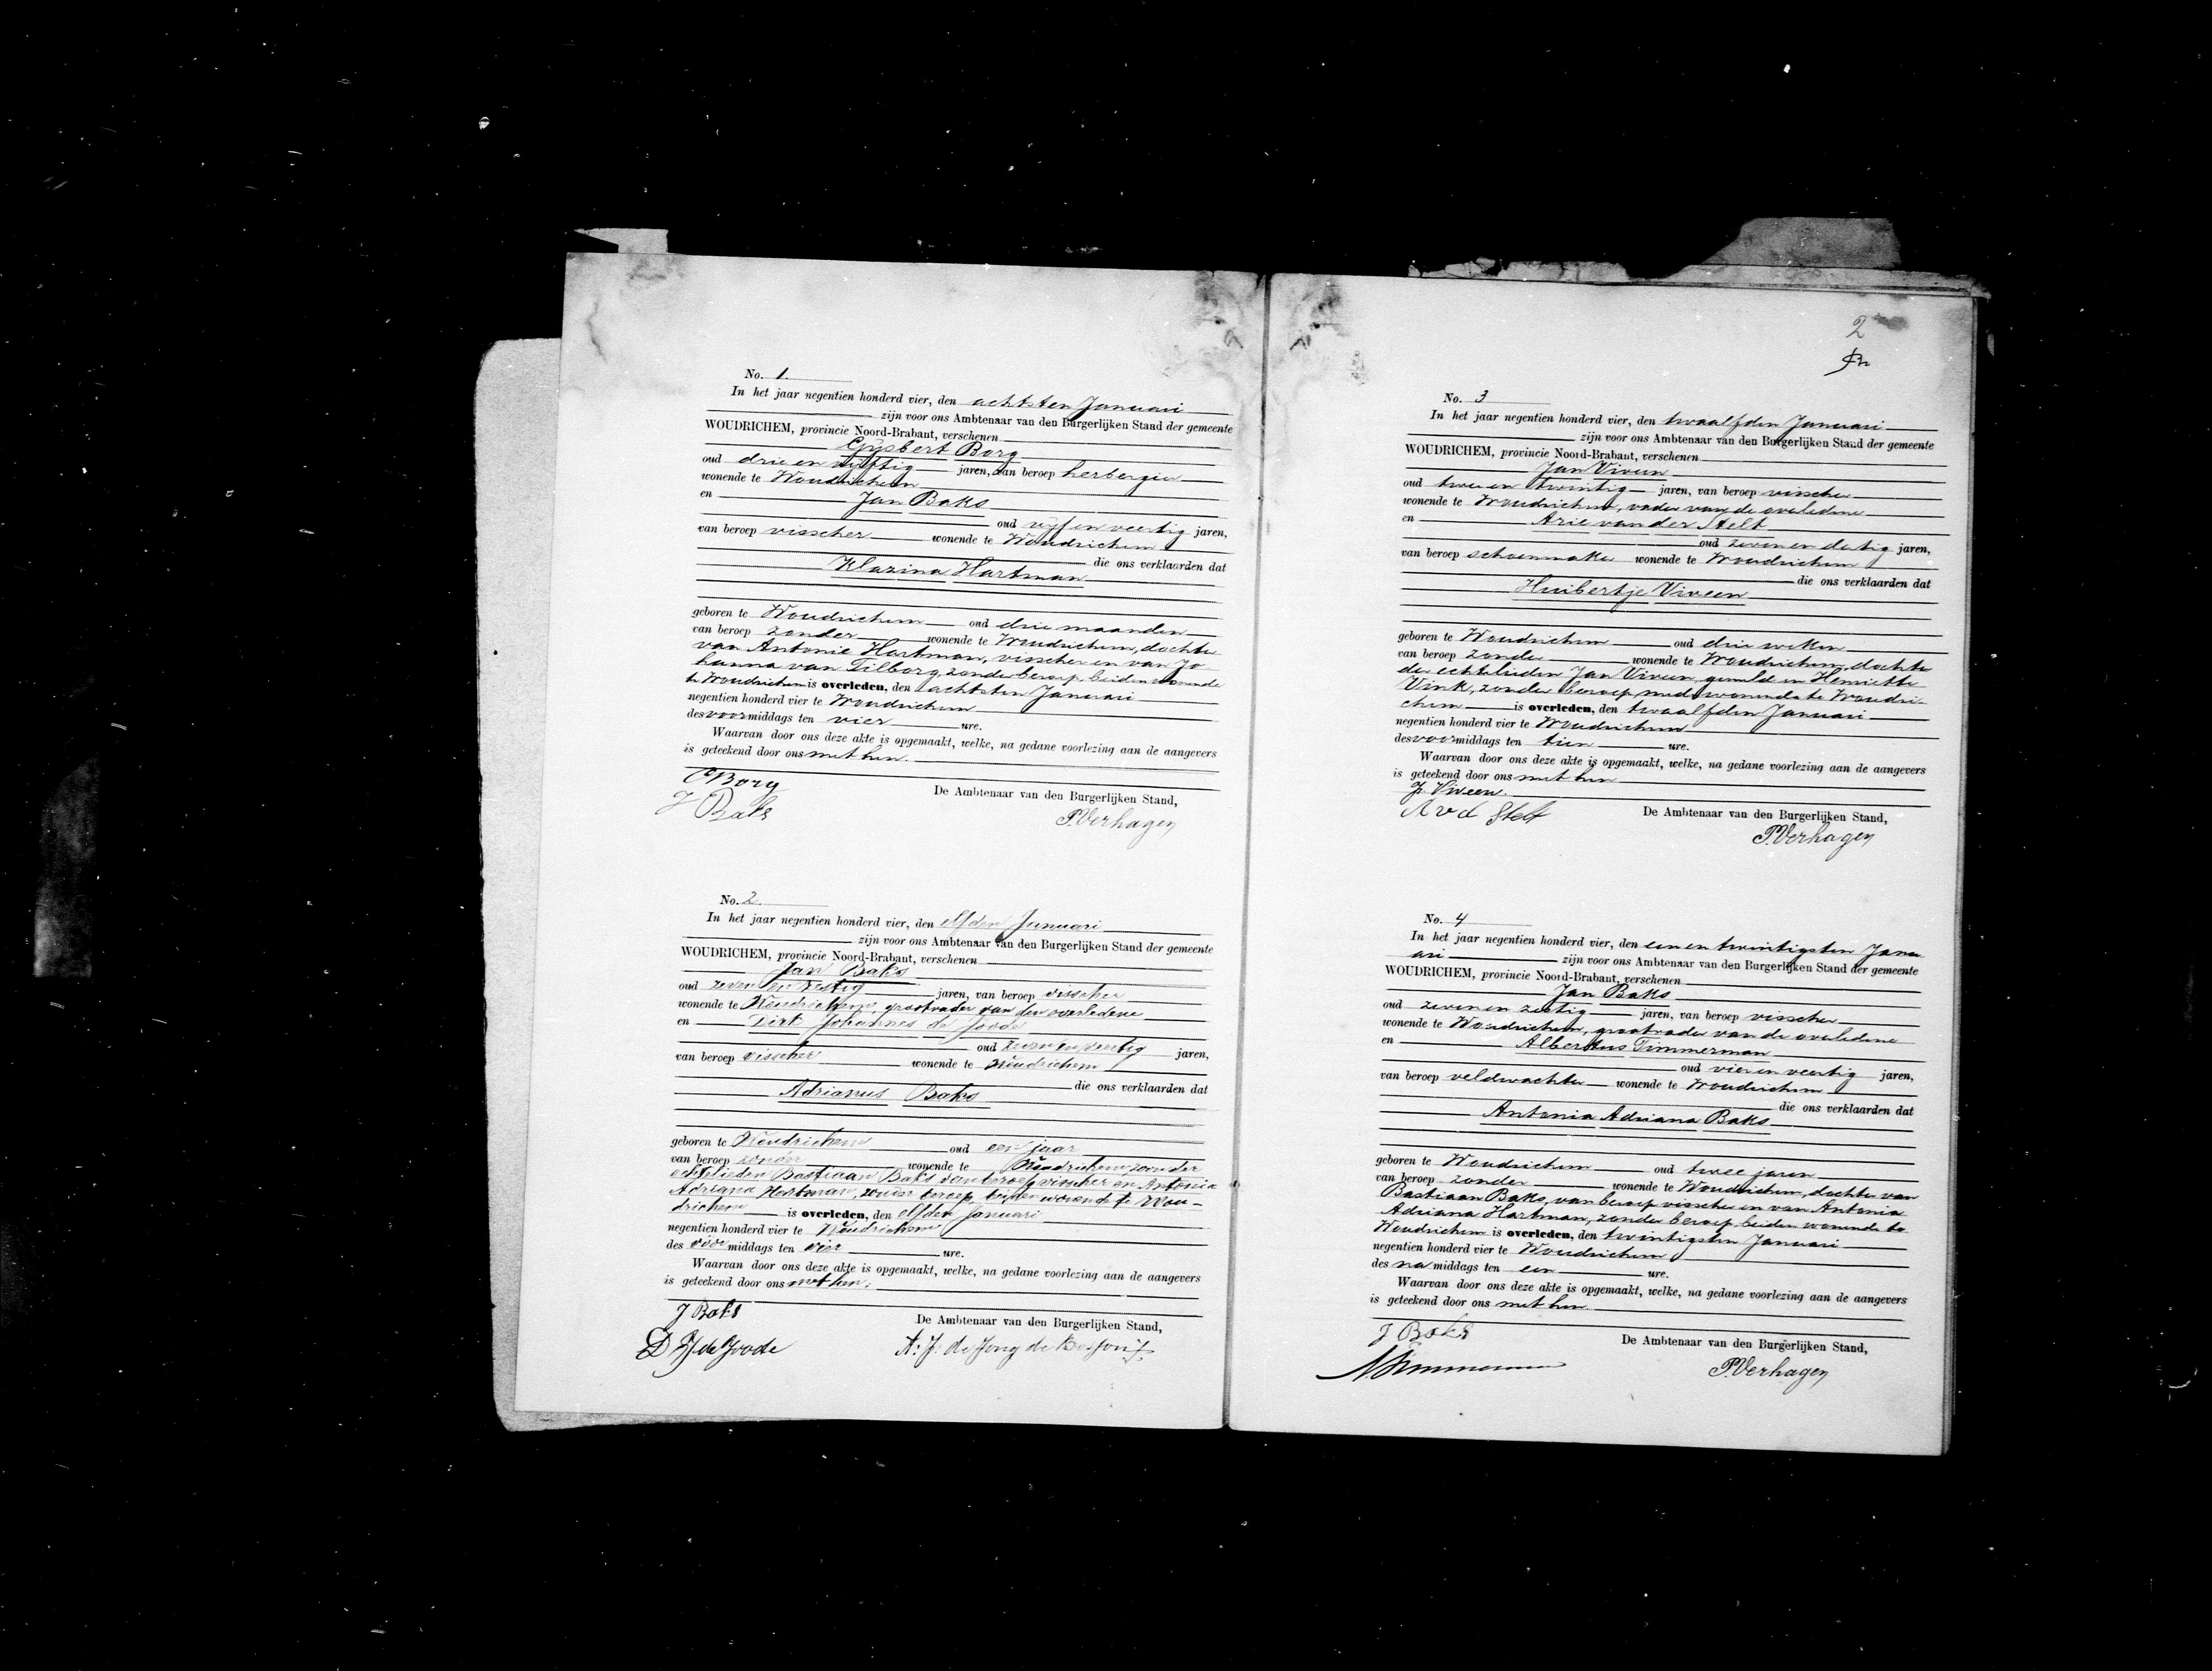 No. 1.
In het jaar negentien honderd vier, den achtsten Januari
zijn voor ons Ambtenaar van den Burgerlijken Stand der gemeente
WOUDRICHEM, provincie Noord-Brabant, verschenen
Gijsbert Borg
oud drie en vijftig jaren, van beroep herbergier
wonende te Woudrichem
en Jan Baks
oud vijf en veertig jaren,
van beroep visscher wonende te Woudrichem
die ons verklaarden dat
Klazina Hartman
geboren te Woudrichem oud drie maanden
van beroep zonder wonende te Woudrichem, dochter
van Antonie Hartman, visscher en van Jo-
hanna van Tilborg, zonder beroep, beiden wonende
te Woudrichem is overleden, den achtsten Januari
negentien honderd vier te Woudrichem
des voormiddags ten vier ure.
Waarvan door ons deze akte is opgemaakt, welke, na gedane voorlezing aan de aangevers
is geteekend door ons met hen.
GBorg
J Baks
De Ambtenaar van den Burgerlijken Stand,
P. Verhagen
No. 2.
In het jaar negentien honderd vier, den elfden Januari
zijn voor ons Ambtenaar van den Burgerlijken Stand der gemeente
WOUDRICHEM, provincie Noord-Brabant, verschenen
Jan Baks
oud zeven en zestig jaren, van beroep visscher
wonende te Woudrichem, grootvader van den overledene
en Dirk Johannes de Joode
oud zeven en veertig jaren,
van beroep visscher wonende te Woudrichem
die ons verklaarden dat
Adrianus Baks
geboren te Woudrichem oud een jaar
van beroep zonder wonende te Woudrichem, zoon der
echtelieden Bastiaan Baks van beroep visscher en Antonia
Adriana Hartman, zonder beroep, beiden wonende te Wou-
drichem is overleden, den elfden Januari
negentien honderd vier te Woudrichem
des voormiddags ten vier ure.
Waarvan door ons deze akte is opgemaakt, welke, na gedane voorlezing aan de aangevers
is geteekend door ons met hen.
J Baks
D J de Joode
De Ambtenaar van den Burgerlijken Stand,
A. J. de Jong de
2
No. 3
In het jaar negentien honderd vier, den twaalfden Januari
zijn voor ons Ambtenaar van den Burgerlijken Stand der gemeente
WOUDRICHEM, provincie Noord-Brabant, verschenen
Jan Viveen
oud twee en twintig jaren, van beroep visscher
wonende te Woudrichem, vader van de overledene
en Arie van der Stelt
oud zeven en dertig jaren,
van beroep schoenmaker wonende te Woudrichem
die ons verklaarden dat
Huibertje Viveen
geboren te Woudrichem oud drie weken
van beroep zonder wonende te Woudrichem, dochter
der echtelieden Jan Viveen, gemeld en Henriette
Vink, zonder beroep, mede wonende te Woudri-
chem is overleden, den twaalfden Januari
negentien honderd vier te Woudrichem
des voormiddags ten tien ure.
Waarvan door ons deze akte is opgemaakt, welke, na gedane voorlezing aan de aangevers
is geteekend door ons met hen
J. Viveen.
A v d Stelt
De Ambtenaar van den Burgerlijken Stand,
P. Verhagen
No. 4
In het jaar negentien honderd vier, den een en twintigsten Janu
ari zijn voor ons Ambtenaar van den Burgerlijken Stand der gemeente
WOUDRICHEM, provincie Noord-Brabant, verschenen
Jan Baks
oud zeven en zestig jaren, van beroep visscher
wonende te Woudrichem, grootvader van de overledene
en Albertus Timmerman
oud vier en veertig jaren,
van beroep veldwachter wonende te Woudrichem
die ons verklaarden dat
Antonia Adriana Baks
geboren te Woudrichem oud twee jaren
van beroep zonder wonende te Woudrichem, dochter van
Bastiaan Baks, van beroep visscher en van Antonia
Adriana Hartman, zonder beroep, beiden wonende te
Woudrichem is overleden, den twintigsten Januari
negentien honderd vier te Woudrichem
des namiddags ten een ure.
Waarvan door ons deze akte is opgemaakt, welke, na gedane voorlezing aan de aangevers
is geteekend door ons met hen
J Baks
ATimmerman
De Ambtenaar van den Burgerlijken Stand,
P. Verhagen